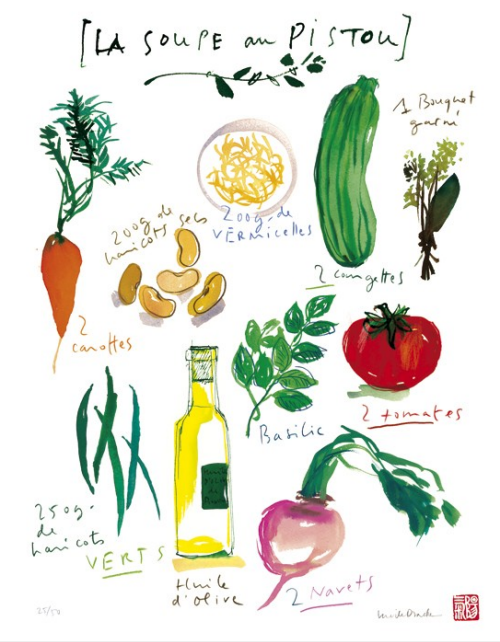 [LA SOUPE au PISTOU]
1 Bouquet
garni
200g. de
haricots secs
200g. de
VERMICELLES
2 courgettes
2
carottes
Basilic
2 tomates
250g.
de
haricots
VERTS
Huile
d'olive
2 Navets
25/50